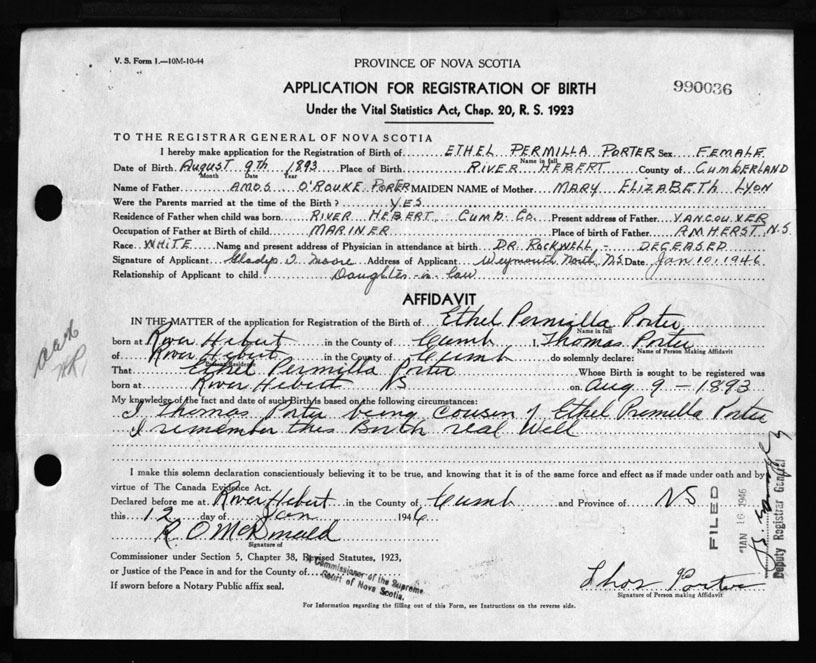 V. S. Form 1.—10M-10-44
PROVINCE OF NOVA SCOTIA
APPLICATION FOR REGISTRATION OF BIRTH
990036
Under the Vital Statistics Act, Chap. 20, R. S. 1923
TO THE REGISTRAR GENERAL OF NOVA SCOTIA
I hereby make application for the Registration of Birth of ETHEL PERMILLA PORTER Sex FEMALE
Name in full
Date of Birth August 9th 1893 Place of Birth RIVER HEBERT County of CUMBERLAND
Month Date Year
Name of Father AMOS O'ROUKE PORTER MAIDEN NAME of Mother MARY ELIZABETH LYON
Were the Parents married at the time of the Birth? YES
Residence of Father when child was born RIVER HEBERT, CUMB. CO. Present address of Father VANCOUVER
Occupation of Father at Birth of child MARINER Place of birth of Father AMHERST, N.S.
Race WHITE Name and present address of Physician in attendance at birth DR. ROCKWELL - DECEASED
Signature of Applicant Gladys V. Moore Address of Applicant Weymouth North, N.S. Date Jan 10, 1946
Relationship of Applicant to child Daughter-in-law
AFFIDAVIT
IN THE MATTER of the application for Registration of the Birth of Ethel Permilla Porter
Name in full
born at River Hebert in the County of Cumb I, Thomas Porter
Name of Person Making Affidavit
of River Hebert in the County of Cumb do solemnly declare:
That Ethel Permilla Porter Whose Birth is sought to be registered was
born at River Hebert NS on Aug 9 - 1893
My knowledge of the fact and date of such Birth is based on the following circumstances:
I Thomas Porter being Cousin of Ethel Premilla Porter
I remember this Birth real Well
I make this solemn declaration conscientiously believing it to be true, and knowing that it is of the same force and effect as if made under oath and by
virtue of The Canada Evidence Act.
Declared before me at River Hebert in the County of Cumb and Province of NS
this 12 day of Jan 1946
R O McDonald
Signature of
Commissioner under Section 5, Chapter 38, Revised Statutes, 1923,
or Justice of the Peace in and for the County of
If sworn before a Notary Public affix seal.
A Commissioner of the Supreme
Court of Nova Scotia.
FILED
JAN 16 1946
Deputy Registrar General
Thos Porter
Signature of Person making Affidavit
For Information regarding the filling out of this Form, see Instructions on the reverse side.